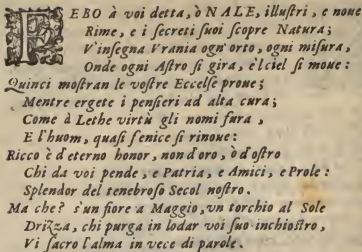 FEBO à voi detta, ò NALE, illuſtri, e noue
Rime, e i ſecreti ſuoi ſcopre Natura;
V'inſegna Vrania ogn'orto, ogni miſura,
Onde ogni Aſtro ſi gira, è'l ciel ſi moue:
Quinci moſtran le voſtre Eccelſe proue;
Mentre ergete i penſieri ad alta cura;
Come à Lethe virtù gli nomi fura,
E l'huom, quaſi fenice ſi rinoue:
Ricco è d'eterno honor, non d'oro, ò d'oſtro
Chi da voi pende, e Patria, e Amici, e Prole:
Splendor del tenebroſo Secol noſtro.
Ma che? s'un fiore a Maggio, vn torchio al Sole
Drizza, chi purga in lodar voi ſuo inchioſtro,
Vi ſacro l'alma in vece di parole.